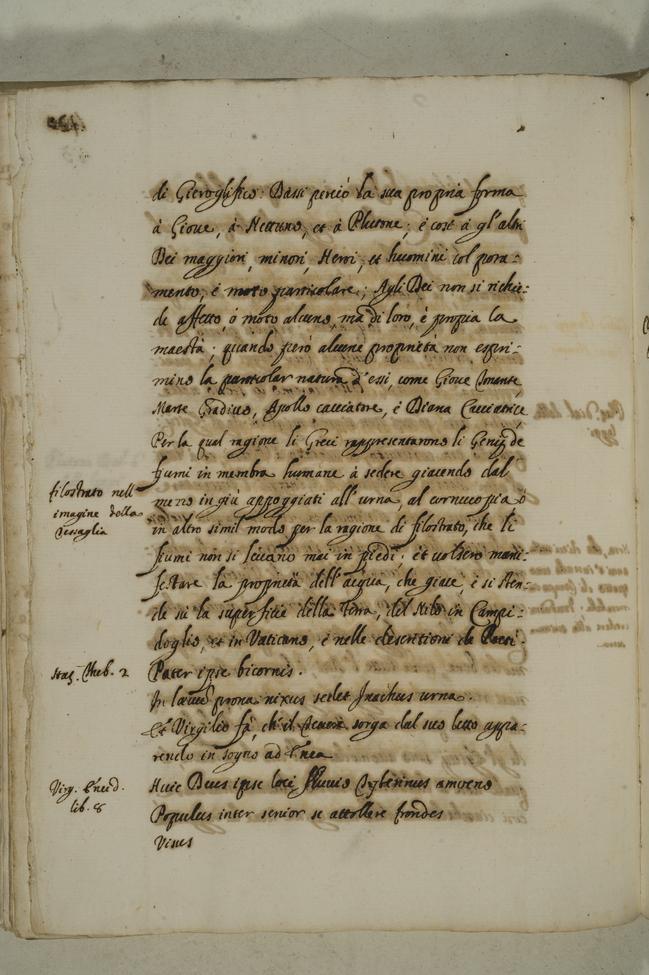 di Gieroglifico: Dassi perciò la sua propria forma
à Gioue, à Nettuno, et à Plutone; è così à gl'altri
Dei maggiori, minori, Heroi, et huomini col porta-
mento, è moto particolare; Agli Dei non si richie-
de affetto, ò moto alcuno, mà di loro, è propia la
maestà; quando però alcune proprietà non espri-
mino la particolar natura d'essi, come Gioue Tonante,
Marte Gradiuo, Apollo cacciatore, è Diana Cacciatrice
Per la qual ragione li Greci rappresentarono li Genij de
fiumi in membra humane à sedere giacendo dal
filostrato nell
imagine della
Tessaglia
mezo in giù appoggiati all'urna, al cornucopia ò
in altro simil modo per la ragione di filostrato, che li
fiumi non si leuano mai in piedi; et uolsero mani-
festare la proprietà dell'acqua, che giace, è si sten-
de sù la superficie della Terra, del Nilo in Campi-
doglio, et in Vaticano, è nelle descritioni de Poeti.
Staz. Theb. 2
Pater ipse bicornis.
In læuum prona nixus sedet Inachus urna.
Et Virgilio fà, ch'il Teuere sorga dal suo letto appa-
rendo in sogno ad Enea
Virg. Eneid.
lib. 8
Huic Deus ipse loci fluuio Tyberinus amoeno
Populeas inter senior se attollere frondes
Visus